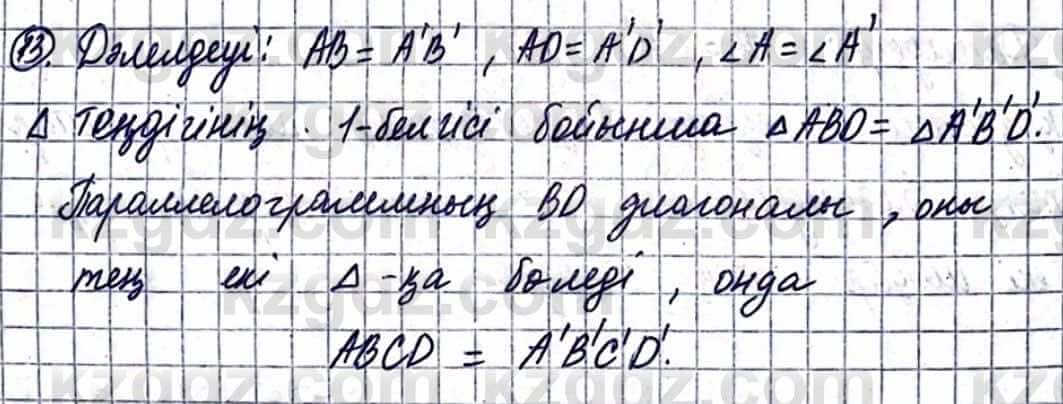 73. Дәлелдеуі: AB = A'B', AD = A'D', ∠A = ∠A'
Δ теңдігінің 1-белгісі бойынша ΔABD = ΔA'B'D'.
Параллелограммның BD диагоналы, оны
тең екі Δ-қа бөледі, онда
ABCD = A'B'C'D'.